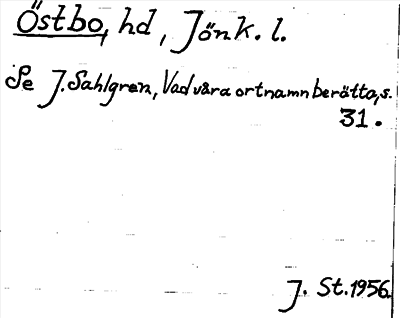 Östbo, hd, Jönk. l.
Se J. Sahlgren, Vad våra ortnamn berätta, s.
31.
J. St. 1956.